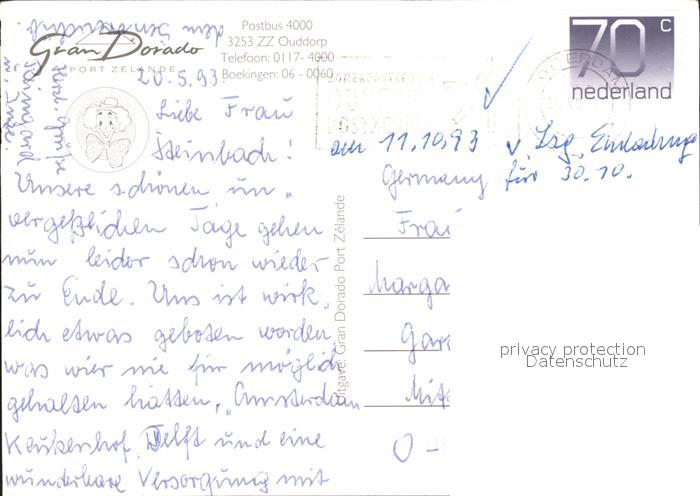 dem
Gran Dorado
PORT ZÉLANDE
Postbus 4000
3253 ZZ Ouddorp
Telefoon: 0117- 4000
Boekingen: 06 - 0060
70 c
nederland
20.5.93
Liebe Frau
Steinbach!
Unsere schönen un„
vergeßlichen Tage gehen
nun leider schon wieder
zu Ende. Uns ist wirk„
lich etwas geboten worden
was wier nie für möglich
gehalten hätten, „Amsterdam
Keukenhof, Delft und eine
wunderbare Versorgung mit
Herzl. Grüße
Reinhard
u. Inge.
am 11.10.93
Einladung
für 30.10.
Germany
Frau
Marga
Gar
Mit
O -
Uitgave: Gran Dorado Port Zélande
privacy protection
Datenschutz